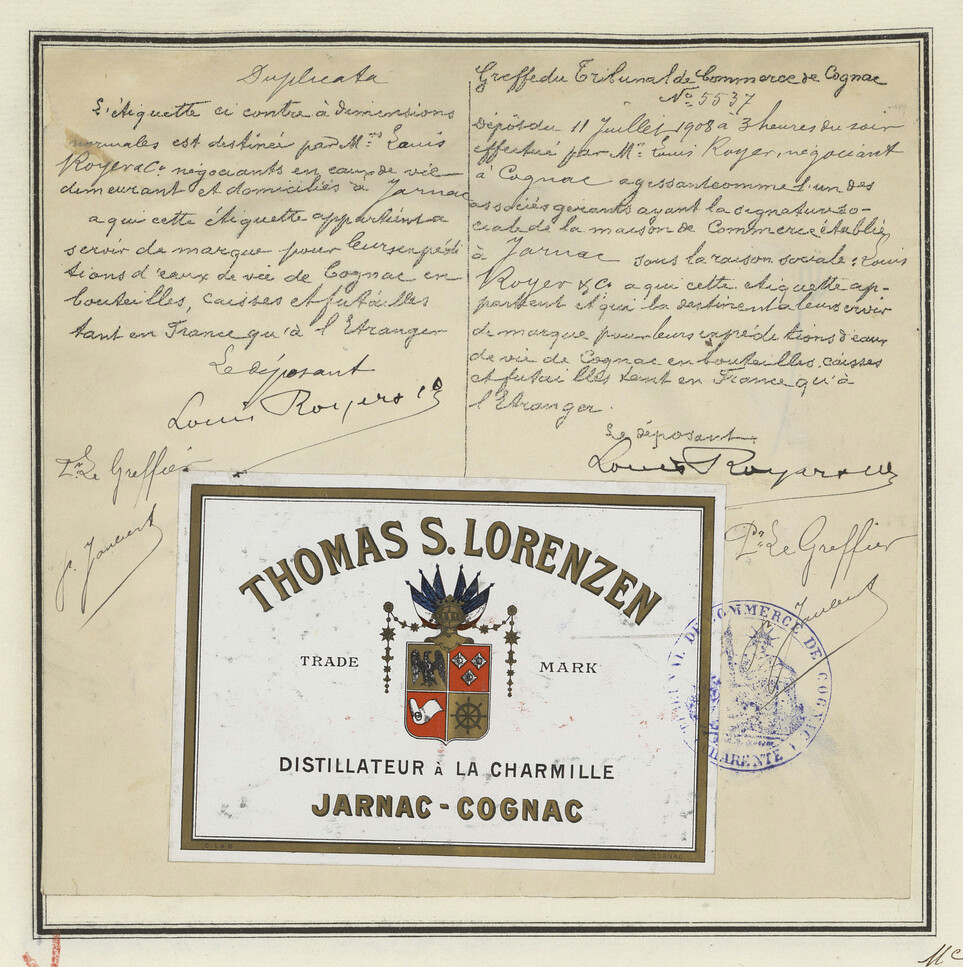 Duplicata
L'étiquette ci contre à dimensions
normales est destinée par Mrs Louis
Royer & Co négociants en eaux de vie
demeurant et domiciliés à Jarnac
a qui cette étiquette appartient a
servir de marque pour leurs expédi
tions d'eaux de vie de Cognac en
bouteilles, caisses et futailles
tant en France qu'à l'Etranger
Le déposant
Louis Royer & Co
Pr Le Greffier
Greffe du Tribunal de Commerce de Cognac
No 5537
Dépôt du 11 Juillet 1908 à 3 heures du soir
effectué par Mr Louis Royer, négociant
à Cognac agissant comme l'un des
associés gérants ayant la signature so-
ciale de la maison de Commerce établie
à Jarnac sous la raison sociale: Louis
Royer & Co a qui cette etiquette ap-
partient et qui la destinent a leur servir
de marque pour leurs expéditions d'eaux
de vie de Cognac en bouteilles, caisses
et futailles tant en France qu'à
l'Etranger.
Le déposant.
Louis Royer & Co
Pr Le Greffier
THOMAS S. LORENZEN
TRADE MARK
DISTILLATEUR à LA CHARMILLE
JARNAC - COGNAC
TRIBUNAL DE COMMERCE DE COGNAC
CHARENTE